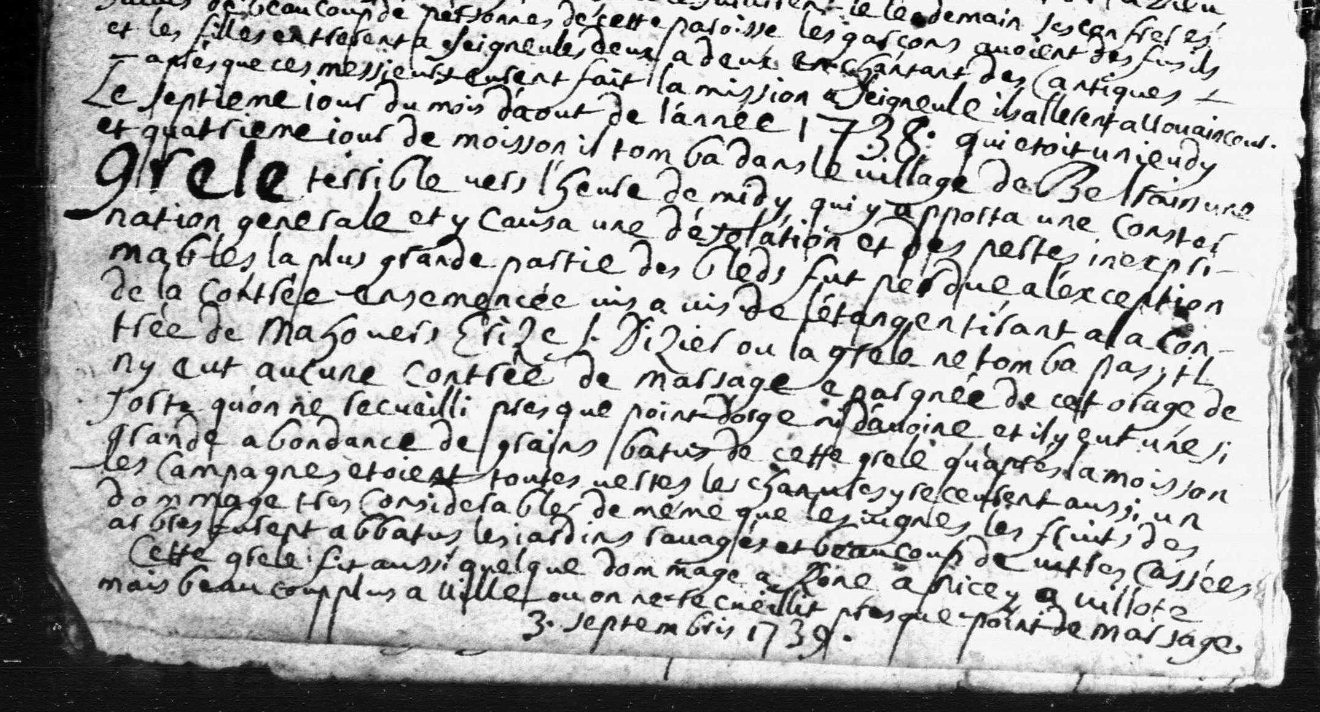 de beaucoup de personnes de cette paroisse le lendemain ses confreres
et les filles entrerent a Seigneules deux a deux en chantant des Cantiques les garçons avoient des fusils
apres que ces messieurs eurent fait la mission a Seigneule ils allerent a Louaincour.
Le septieme iour du mois d'aout de l'année 1738: qui etoit un ieudy
et quatrieme iour de moisson il tomba dans le village de Beltrain une
grele terrible vers l'heure de midy qui y apporta une conster
nation generale et y causa une désolation et des pertes inexpri-
mables la plus grande partie des bleds fut perdue a léxception
de la contrée ensemencée vis a vis de l'étang en tirant a la con-
trée de Mazouers Erize S. Dizier ou la grele ne tomba pas; il
ny eut aucune contrée de marsage epargnée de cet orage de
sorte qu'on ne recueilli presque point d'orge ni d'avoine et il y eut une si
grande abondance de grains batus de cette grele qu'apres la moisson
les campagnes etoient toutes vertes les chanvres y receurent aussi un
dommage tres considerables de méme que les vignes les fruits des
arbres furent abbatus les iardins ravagés et beaucoup de vittres cassées
Cette grele fit aussi quelque dommage a Rône a Nicey a villote
mais beaucoup plus a Ville ou on ne recueillit presque point de marsage.
3. septembris 1739.